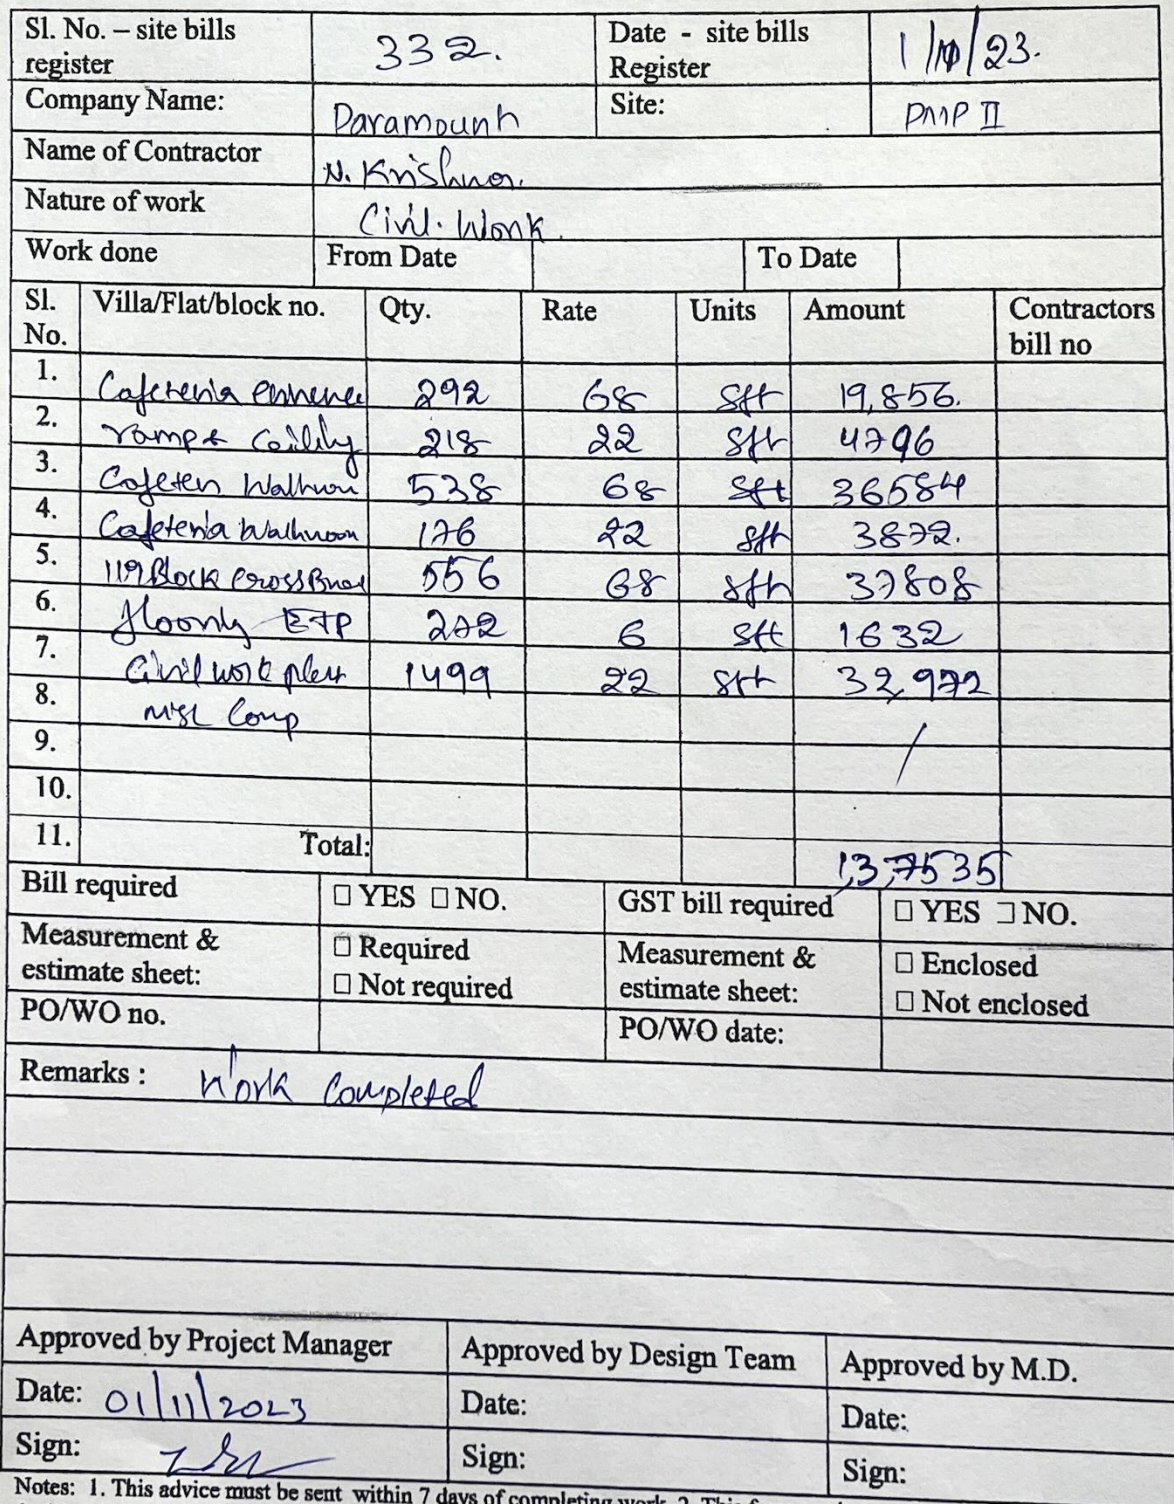 Sl. No. – site bills register 332. Date - site bills Register 1/11/23.
Company Name: Paramount Site: PMP II
Name of Contractor N. Krishna.
Nature of work Civil. Work.
Work done From Date To Date
Sl. No. Villa/Flat/block no. Qty. Rate Units Amount Contractors bill no
1. Cafeteria 292 68 sft 19,856.
2. ramp & 218 22 sft 4796
3. 538 68 sft 36584
4. Cafeteria 176 22 sft 3872.
5. 119 Block Cross 556 68 sft 37808
6. ETP 272 6 sft 1632
7. Civil work 1499 22 sft 32,972
8. Comp
9. /
10.
11. Total: 1,37,535
Bill required □ YES □ NO. GST bill required □ YES □ NO.
Measurement & estimate sheet: □ Required □ Not required Measurement & estimate sheet: □ Enclosed □ Not enclosed
PO/WO no. PO/WO date:
Remarks : Work Completed
Approved by Project Manager Approved by Design Team Approved by M.D.
Date: 01/11/2023 Date: Date:
Sign: Sign: Sign:
Notes: 1. This advice must be sent within 7 days of completing work. 2. This